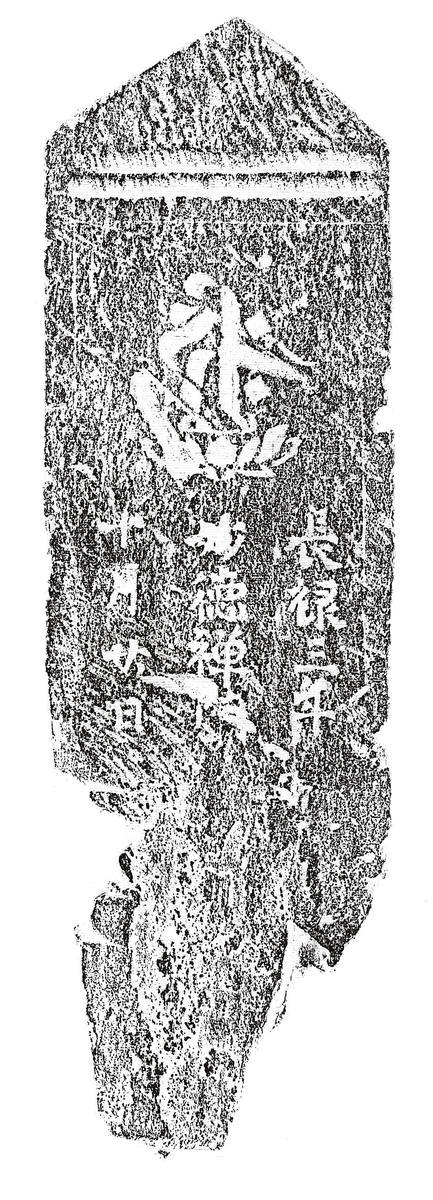 長禄三年
妙徳禅
十月廿日